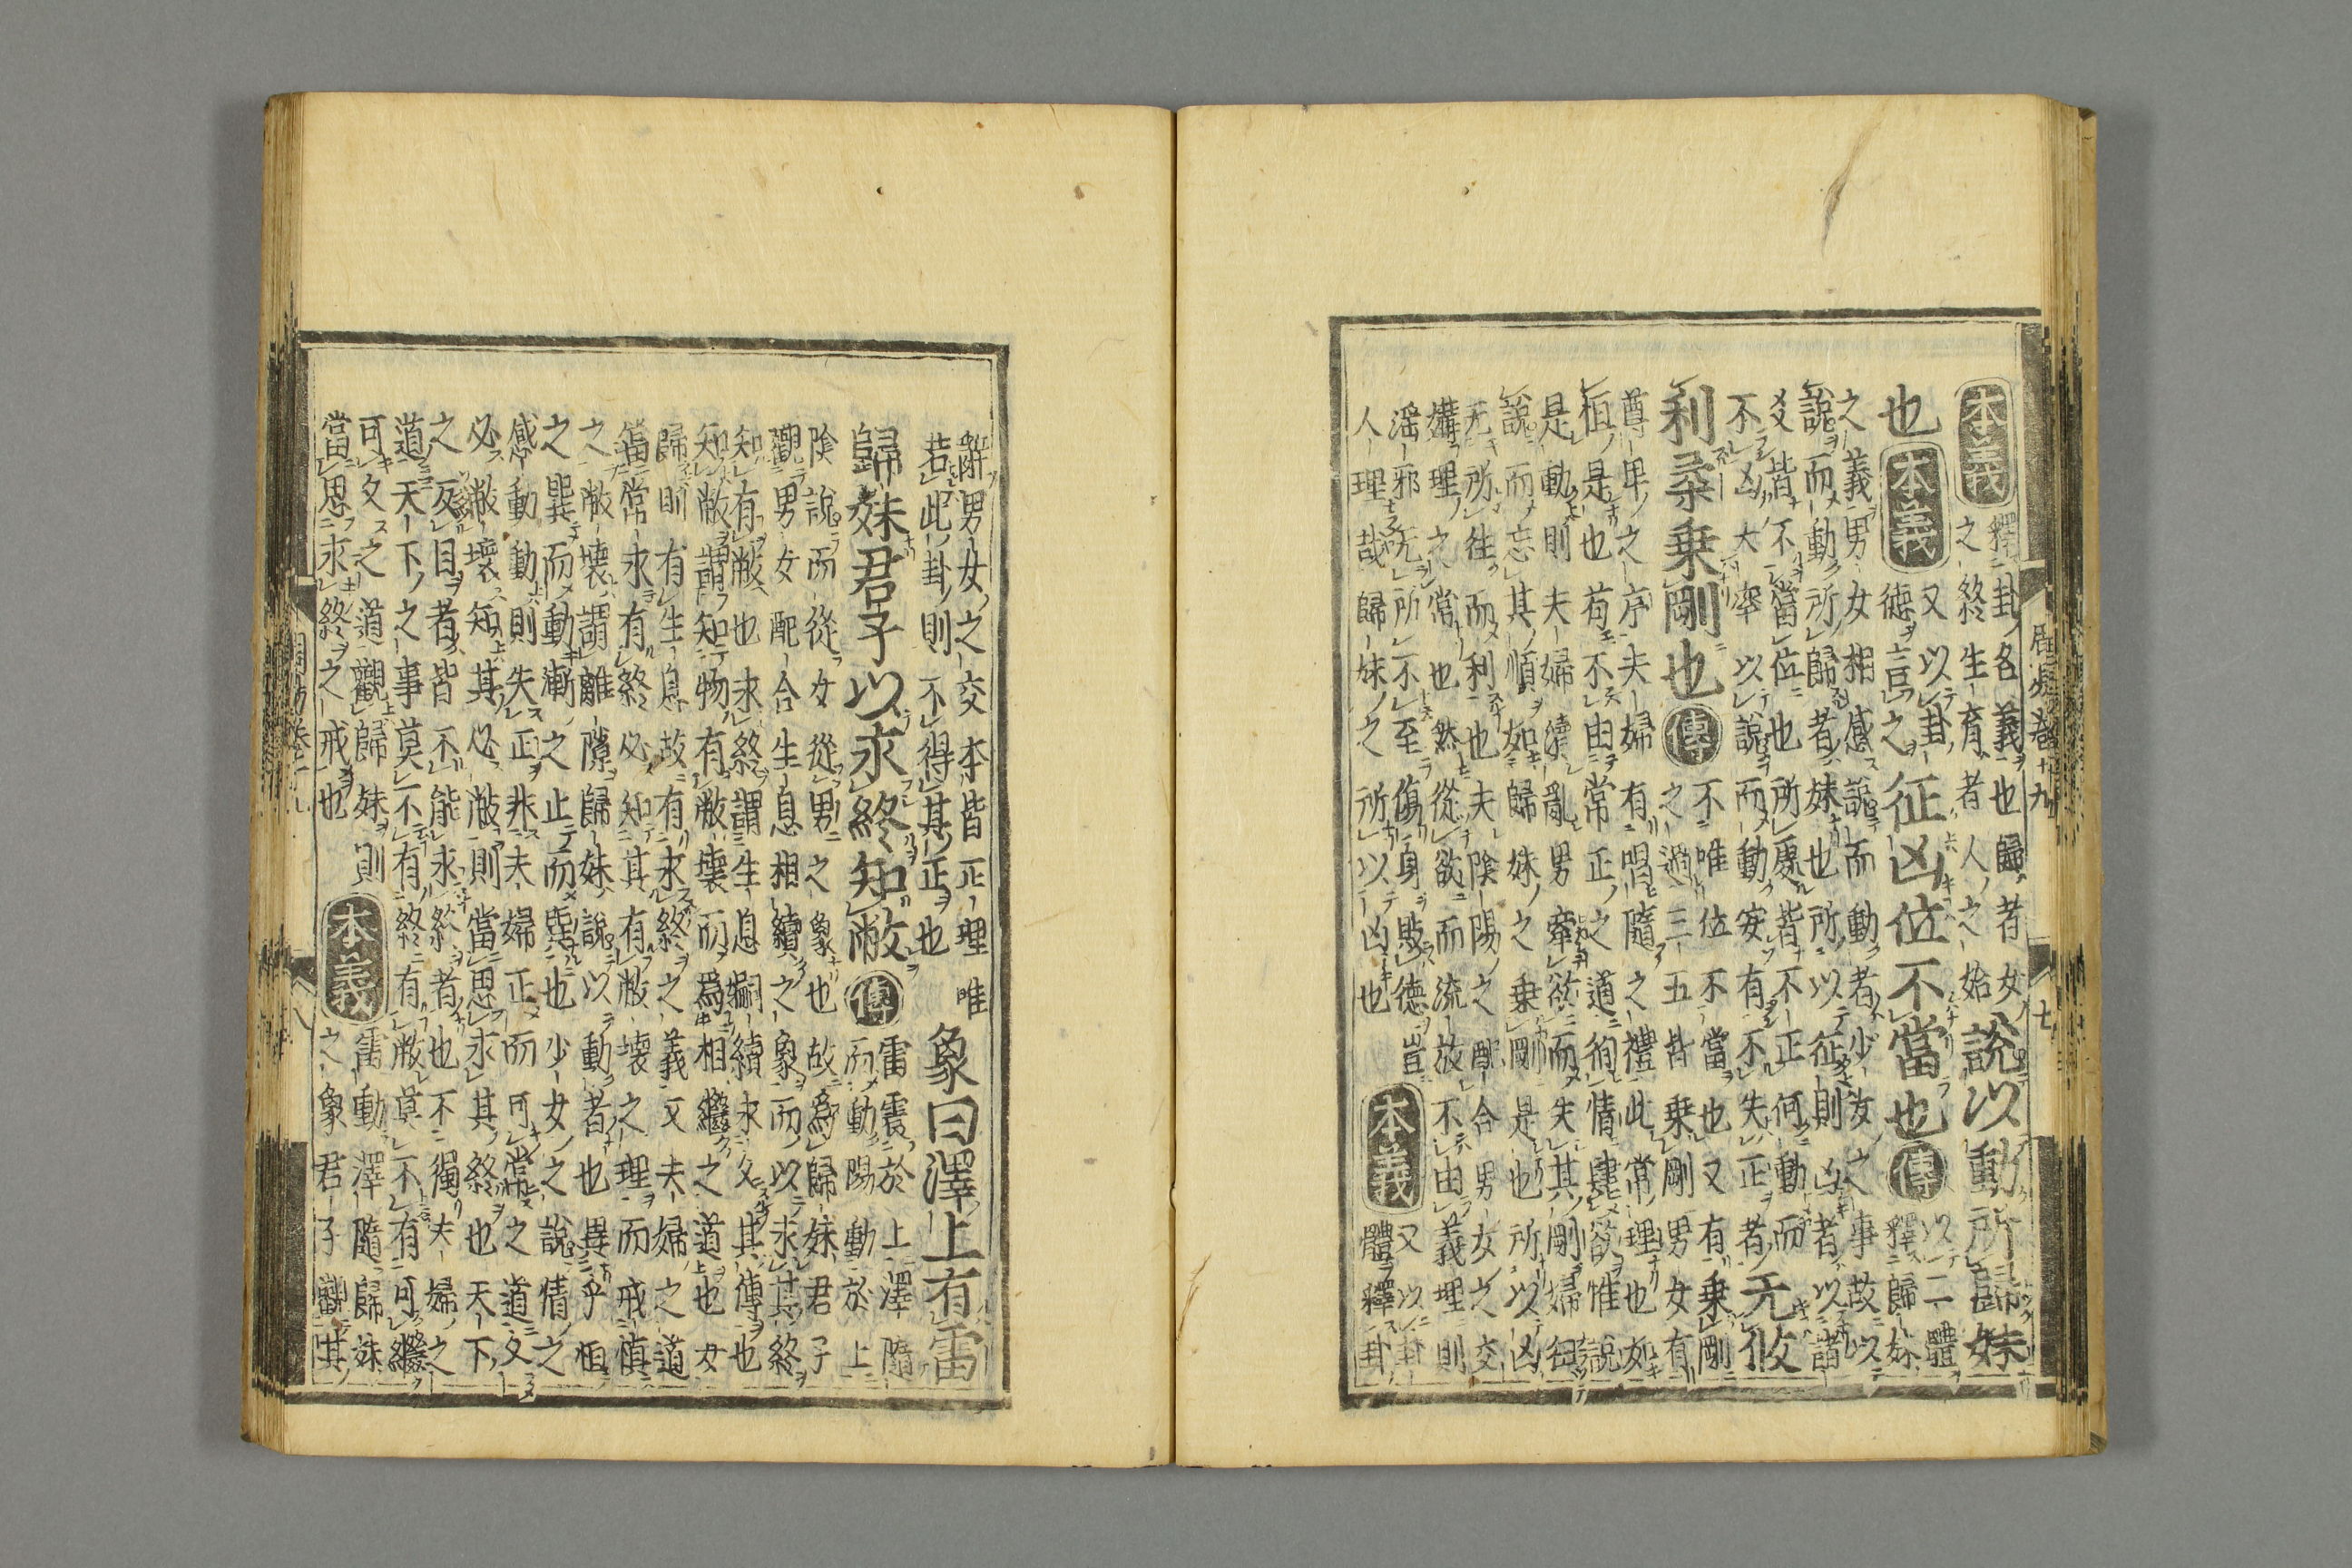 本義
釋卦名義也歸者女
之終生育者人之始
說以動所歸妹
也
本義
又以卦
德言之
征凶位不當也
傳
以二體
釋歸妹
之義男女相感說而動者少女之事故以
說而動所歸者妹也所以征則凶者以諸
爻皆不當位也所處皆不正何動而
不凶大率以說而動安有不失正者
无攸
利柔乗剛也
傳
不唯位不當也又有乗剛
之過三五皆乗剛男女有
尊卑之序夫婦有唱隨之禮此常理也如
恒是也苟不由常正之道徇情肆欲惟說
是動則夫婦瀆亂男牽欲而失其剛婦狃
說而忘其順如歸妹之乗剛是也所以凶
无所往而利也夫陰陽之配合男女之交
媾理之常也然從欲而流放不由義理則
淫邪无所不至傷身敗德豈
人理哉歸妹之所以凶也
本義
又以卦
體釋卦
辭男女之交本皆正理唯
若此卦則不得其正也
象曰澤上有雷
歸妹君子以永終知敝
傳
雷震於上澤隨
而動陽動於上
陰說而從女從男之象也故為歸妹君子
觀男女配合生息相續之象而以永其終
知有敝也永終謂生息嗣續永久其傳也
知敝謂知物有敝壞而為相繼之道也女
歸則有生息故有永終之義又夫婦之道
當常永有終必知其有敝壞之理而戒慎
之敝壞謂離隙歸妹說以動者也異乎恒
之巽而動漸之止而巽也少女之說情之
感動動則失正非夫婦正而可常之道久
必敝壞知其必敝則當思永其終也天下
之反目者皆不能永終者也不獨夫婦之
道天下之事莫不有終有敝莫不有可繼
可久之道觀歸妹則
當思永終之戒也
本義
雷動澤隨歸妹
之象君子觀其